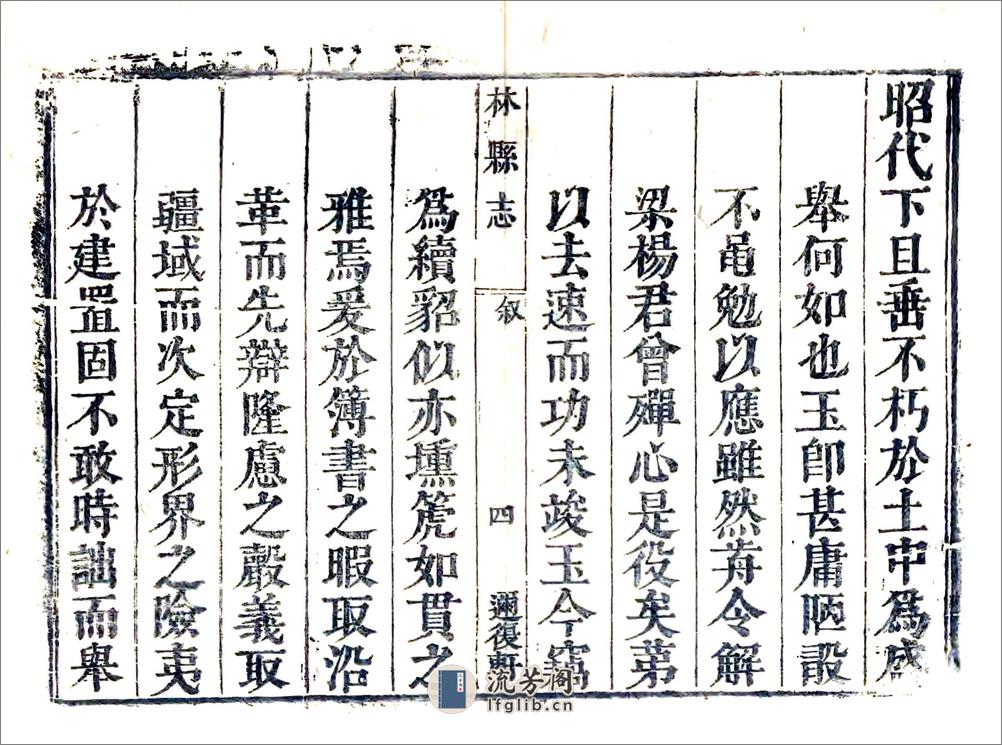 昭代下且垂不朽於土中為盛
舉何如也玉即甚庸陋敢
不黽勉以應雖然前令解
梁楊君曾殫心是役矣第
以去速而功未竣玉今竊
林縣志 叙 四 邇復軒
為續貂似亦壎篪如貫之
雅焉爰於簿書之暇取沿
革而先辯隆慮之嚴義取
疆域而次定形界之險夷
於建置固不敢時詘而舉
流芳阁
lfglib.cn